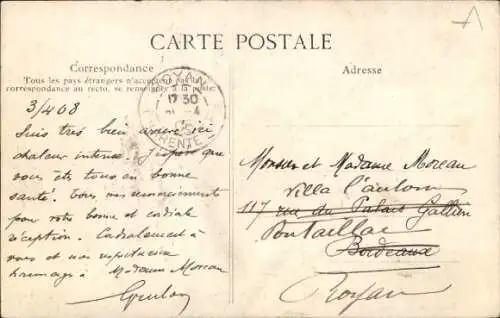 CARTE POSTALE
Correspondance
Tous les pays étrangers n'acceptent pas de
correspondance au recto, se renseigner à la poste
Adresse
ROYAN
17 30
3/4 08
Suis très bien arrivé ici
chaleur intense. J'espère que
vous êtes tous en bonne
santé. Tous mes remerciements
pour votre bonne et cordiale
réception. Cordialement à
vous et mes respectueux
hommages à Madame Moreau
Monsieur et Madame Moreau
Villa
117 rue du Palais Gallien
Pontaillac
Bordeaux
Royan